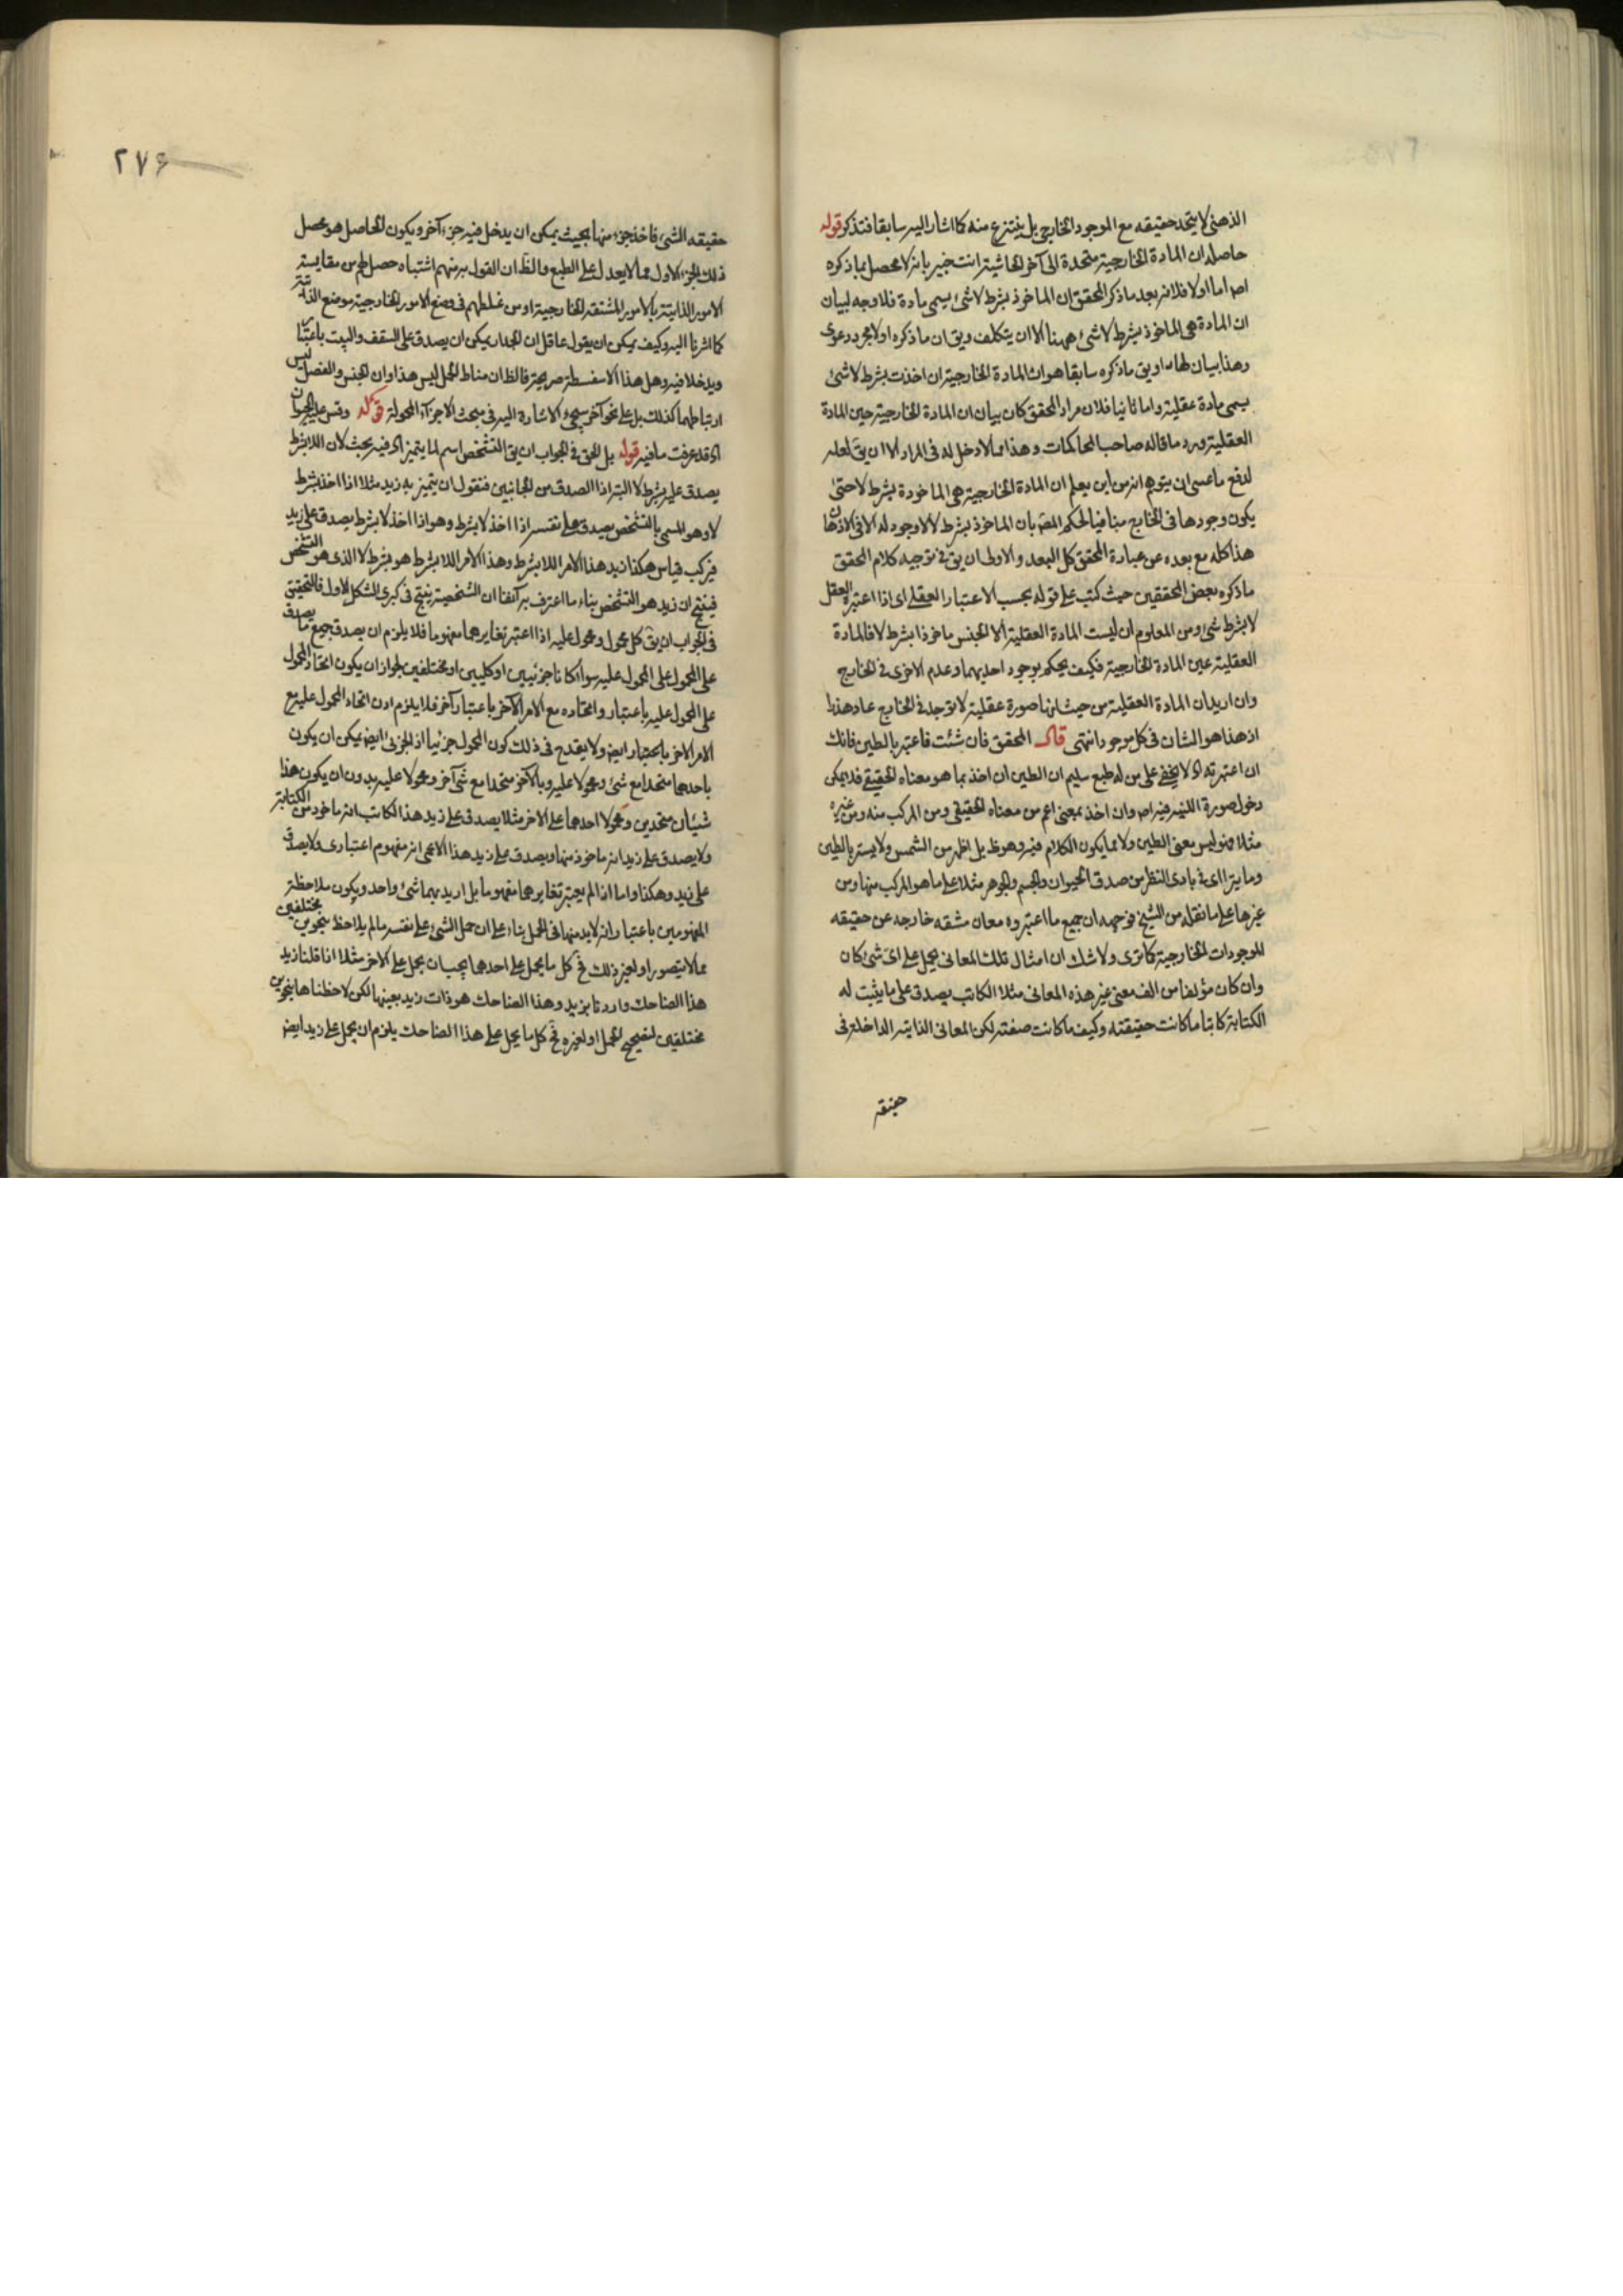 الذهنى لا يتحد حقيقه مع الموجود الخارجى بل ينتزع منه كما اشار اليه سابقا فتذكر قوله
حاصله ان المادة الخارجية متحدة الى آخر الحاشية انت خبير بانه لا محصل بما ذكره
اصه اما اولا فلانه بعد ما ذكر المحقق ان الماخوذ بشرط لا شئ يسمى مادة فلا وجه لبيان
ان المادة هى الماخوذ بشرط لا شئ ههنا الا ان يتكلف ويق ان ما ذكره اولا مجرد دعوى
وهذا بيان لها او يق ما ذكره سابقا هو ان المادة الخارجية ان اخذت بشرط لا شئ
يسمى مادة عقلية واما ثانيا فلان مراد المحقق كان بيان ان المادة الخارجية عين المادة
العقلية ورد ما قاله صاحب المحاكمات وهذا مما لا دخل له فى المراد الا ان يق لعله
لدفع ما عسى ان يتوهم انه من اين يعلم ان المادة الخارجية هى الماخوذة بشرط لا حتى
يكون وجودها فى الخارج منافيا لحكم المصه بان الماخوذ بشرط لا لا وجود له الا فى الاذهان
هذا كله مع بعده عن عبارة المحقق كل البعد والاولى ان يق فى توجيه كلام المحقق
ما ذكره بعض المحققين حيث كتب على قوله بحسب الاعتبار العقلى اى اذا اعتبره العقل
لا بشرط شئ ومن المعلوم ان ليست المادة العقلية الا الجنس ماخوذا بشرط لا فالمادة
العقلية عين المادة الخارجية فكيف يحكم بوجود احديهما وعدم الاخرى فى الخارج
وان اريد ان المادة العقلية من حيث انها صورة عقلية لا توجد فى الخارج عاد هذا
اذ هذا هو الشان فى كل موجود انتهى قال المحقق فان شئت فاعتبر بالطين فانك
ان اعتبرته اه لا يخفى على من له طبع سليم ان الطين ان اخذ بما هو معناه الحقيقى فلا يمكن
دخول صورة اللبنيه فيه اصه وان اخذ بمعنى اعم من معناه الحقيقى ومن المركب منه ومن غيره
مثلا فهو ليس معنى الطين ولا مما يكون الكلام فيه وهو ظ بل اظهر من الشمس ولا يستر بالطين
وما يترااى فى بادى النظر من صدق الحيوان والجسم والجوهر مثلا على ما هو المركب منها ومن
غيرها على ما نقله من الشيخ فوجهه ان جميع ما اعتبروه معان مشقه خارجه عن حقيقه
الموجودات الخارجية كما ترى ولا شك ان امثال تلك المعانى يحمل على اى شئ كان
وان كان مؤلفا من الف معنى غير هذه المعانى مثلا الكاتب يصدق على ما يثبت له
الكتابة كاتبا ما كانت حقيقته وكيف ما كانت صفته لكن المعانى الذاتيه الداخلة فى
حقيقه
٢٧٦
حقيقه الشئ فاخذ جزء منها بحيث يمكن ان يدخل فيه جزء آخر ويكون الحاصل هو محصل
ذلك الجزء الاول مما لا يعدل على الطبع والظ ان القول به منهم اشتباه حصل لهم من مقايسة
الامور الذاتية بالامور المشتقه الخارجية او من غلطهم فى وضع الامور الخارجية موضع الذاتية
كما اشرنا اليه وكيف يمكن ان يقول عاقل ان الجدار يمكن ان يصدق على السقف والبيت باعتبار
ويدخلا فيه وهل هذا الا سفسطة صريحة فالظ ان مناط الحمل ليس هذا وان الجنس والفصل ليس
ارتباطهما كذلك بل على نحو آخر سيجئ الاشارة اليه فى مبحث الاجزاء المحمولة قوله وقس عليه الحيوان
اه قد عرفت ما فيه قوله بل الحق فى الجواب ان يق التشخص اسم لما يتميز اه فيه بحث لان اللا بشرط
يصدق على بشرط لا البته اذا الصدق من الجانبين فنقول ان يتميز به زيد مثلا اذا اخذ بشرط
لا وهو المسمى بالتشخص يصدق على نفسه اذا اخذ لا بشرط وهو اذا اخذ لا بشرط يصدق على زيد
فيركب قياس هكذا زيد هذا الامر اللا بشرط وهذا الامر اللا بشرط هو بشرط لا الذى هو التشخص
فينتج ان زيد هو التشخص بناء ما اعترف به آنفا ان الشخصية ينتج فى كبرى الشكل الاول فالتحقيق
فى الجواب ان يق كل محمول ومحمول عليه اذا اعتبر تغايرهما مفهوما فلا يلزم ان يصدق جميع ما يصدق
على المحمول على المحمول عليه سواء كانا جزئيين او كليين او مختلفين لجواز ان يكون اتحاد المحمول
على المحمول عليه باعتبار واتحاده مع الامر الآخر باعتبار آخر فلا يلزم اذن اتحاد المحمول عليه مع
الامر الاخر باعتبار ايضه ولا يقدح فى ذلك كون المحمول جزئيا اذ الجزئى ايضه يمكن ان يكون
باحدهما متحدا مع شئ ومحمولا عليه وبالآخر متحدا مع شئ آخر ومحمولا عليه بدون ان يكون هذا
شيئان متحدين ومحمولا احدهما على الاخر مثلا يصدق على زيد هذا الكاتب انه ماخوذ من الكتابة
ولا يصدق على زيد انه ماخوذ منها ويصدق على زيد هذا الاعمى انه مفهوم اعتبارى ولا يصدق
على زيد وهكذا واما اذا لم يعتبر تغايرهما مفهوما بل اريد بهما شئ واحد ويكون ملاحظة
المفهومين باعتبار انه لا بد منها فى الحمل بناء على ان حمل الشئ على نفسه ما لم يلاحظ بنحوين مختلفين
مما لا يتصور او لغير ذلك فح كل ما يحمل على احدهما يجب ان يحمل على الاخر مثلا اذا قلنا زيد
هذا الضاحك واردنا بزيد وهذا الضاحك هو ذات زيد بعينها لكن لاحظناها بنحوين
مختلفين لتصحيح الحمل او لغيره فح كل ما يحمل على هذا الضاحك يلزم ان يحمل على زيد ايضه